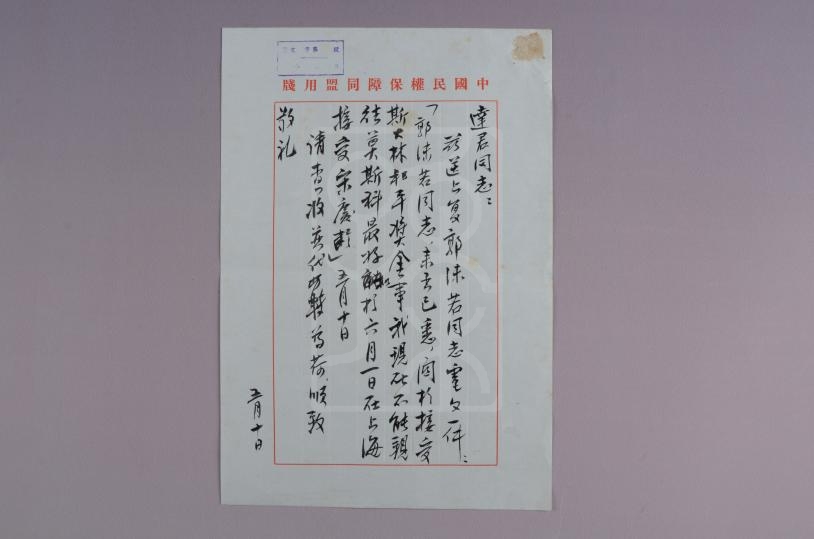 中國民權保障同盟用牋
達君同志：
茲送上复郭沫若同志電文一件：
「郭沫若同志：来函已悉，関於接受
斯大林和平奖金事我現在不能親
往莫斯科最好能於六月一日在上海
接受宋慶齡」五月十日
请查收并代 轉为荷，順致
敬礼
五月十日